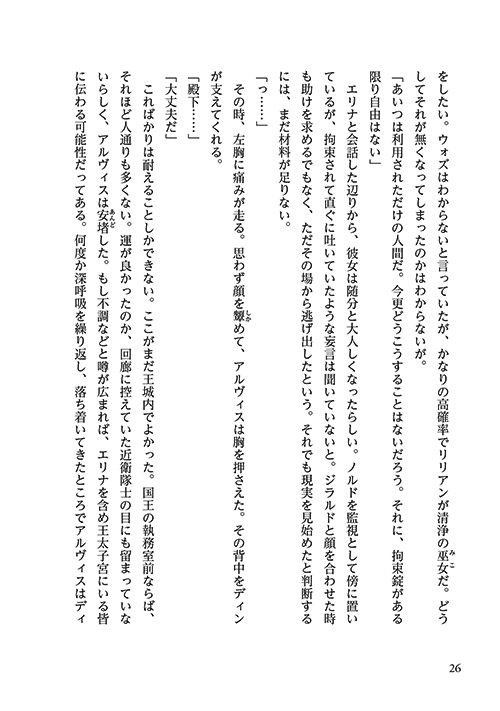 をしたい。ウォズはわからないと言っていたが、かなりの高確率でリリアンが清浄の巫女だ。どう
してそれが無くなってしまったのかはわからないが。
「あいつは利用されただけの人間だ。今更どうこうすることはないだろう。それに、拘束錠がある
限り自由はない」
エリナと会話した辺りから、彼女は随分と大人しくなったらしい。ノルドを監視として傍に置い
ているが、拘束されて直ぐに吐いていたような妄言は聞いていないと。ジラルドと顔を合わせた時
も助けを求めるでもなく、ただその場から逃げ出したという。それでも現実を見始めたと判断する
には、まだ材料が足りない。
「っ……」
その時、左胸に痛みが走る。思わず顔を顰めて、アルヴィスは胸を押さえた。その背中をディン
が支えてくれる。
「殿下……」
「大丈夫だ」
こればかりは耐えることしかできない。ここがまだ王城内でよかった。国王の執務室前ならば、
それほど人通りも多くない。運が良かったのか、回廊に控えていた近衛隊士の目にも留まっていな
いらしく、アルヴィスは安堵した。もし不調などと噂が広まれば、エリナを含め王太子宮にいる皆
に伝わる可能性だってある。何度か深呼吸を繰り返し、落ち着いてきたところでアルヴィスはディ
みこ
しか
あんど
26